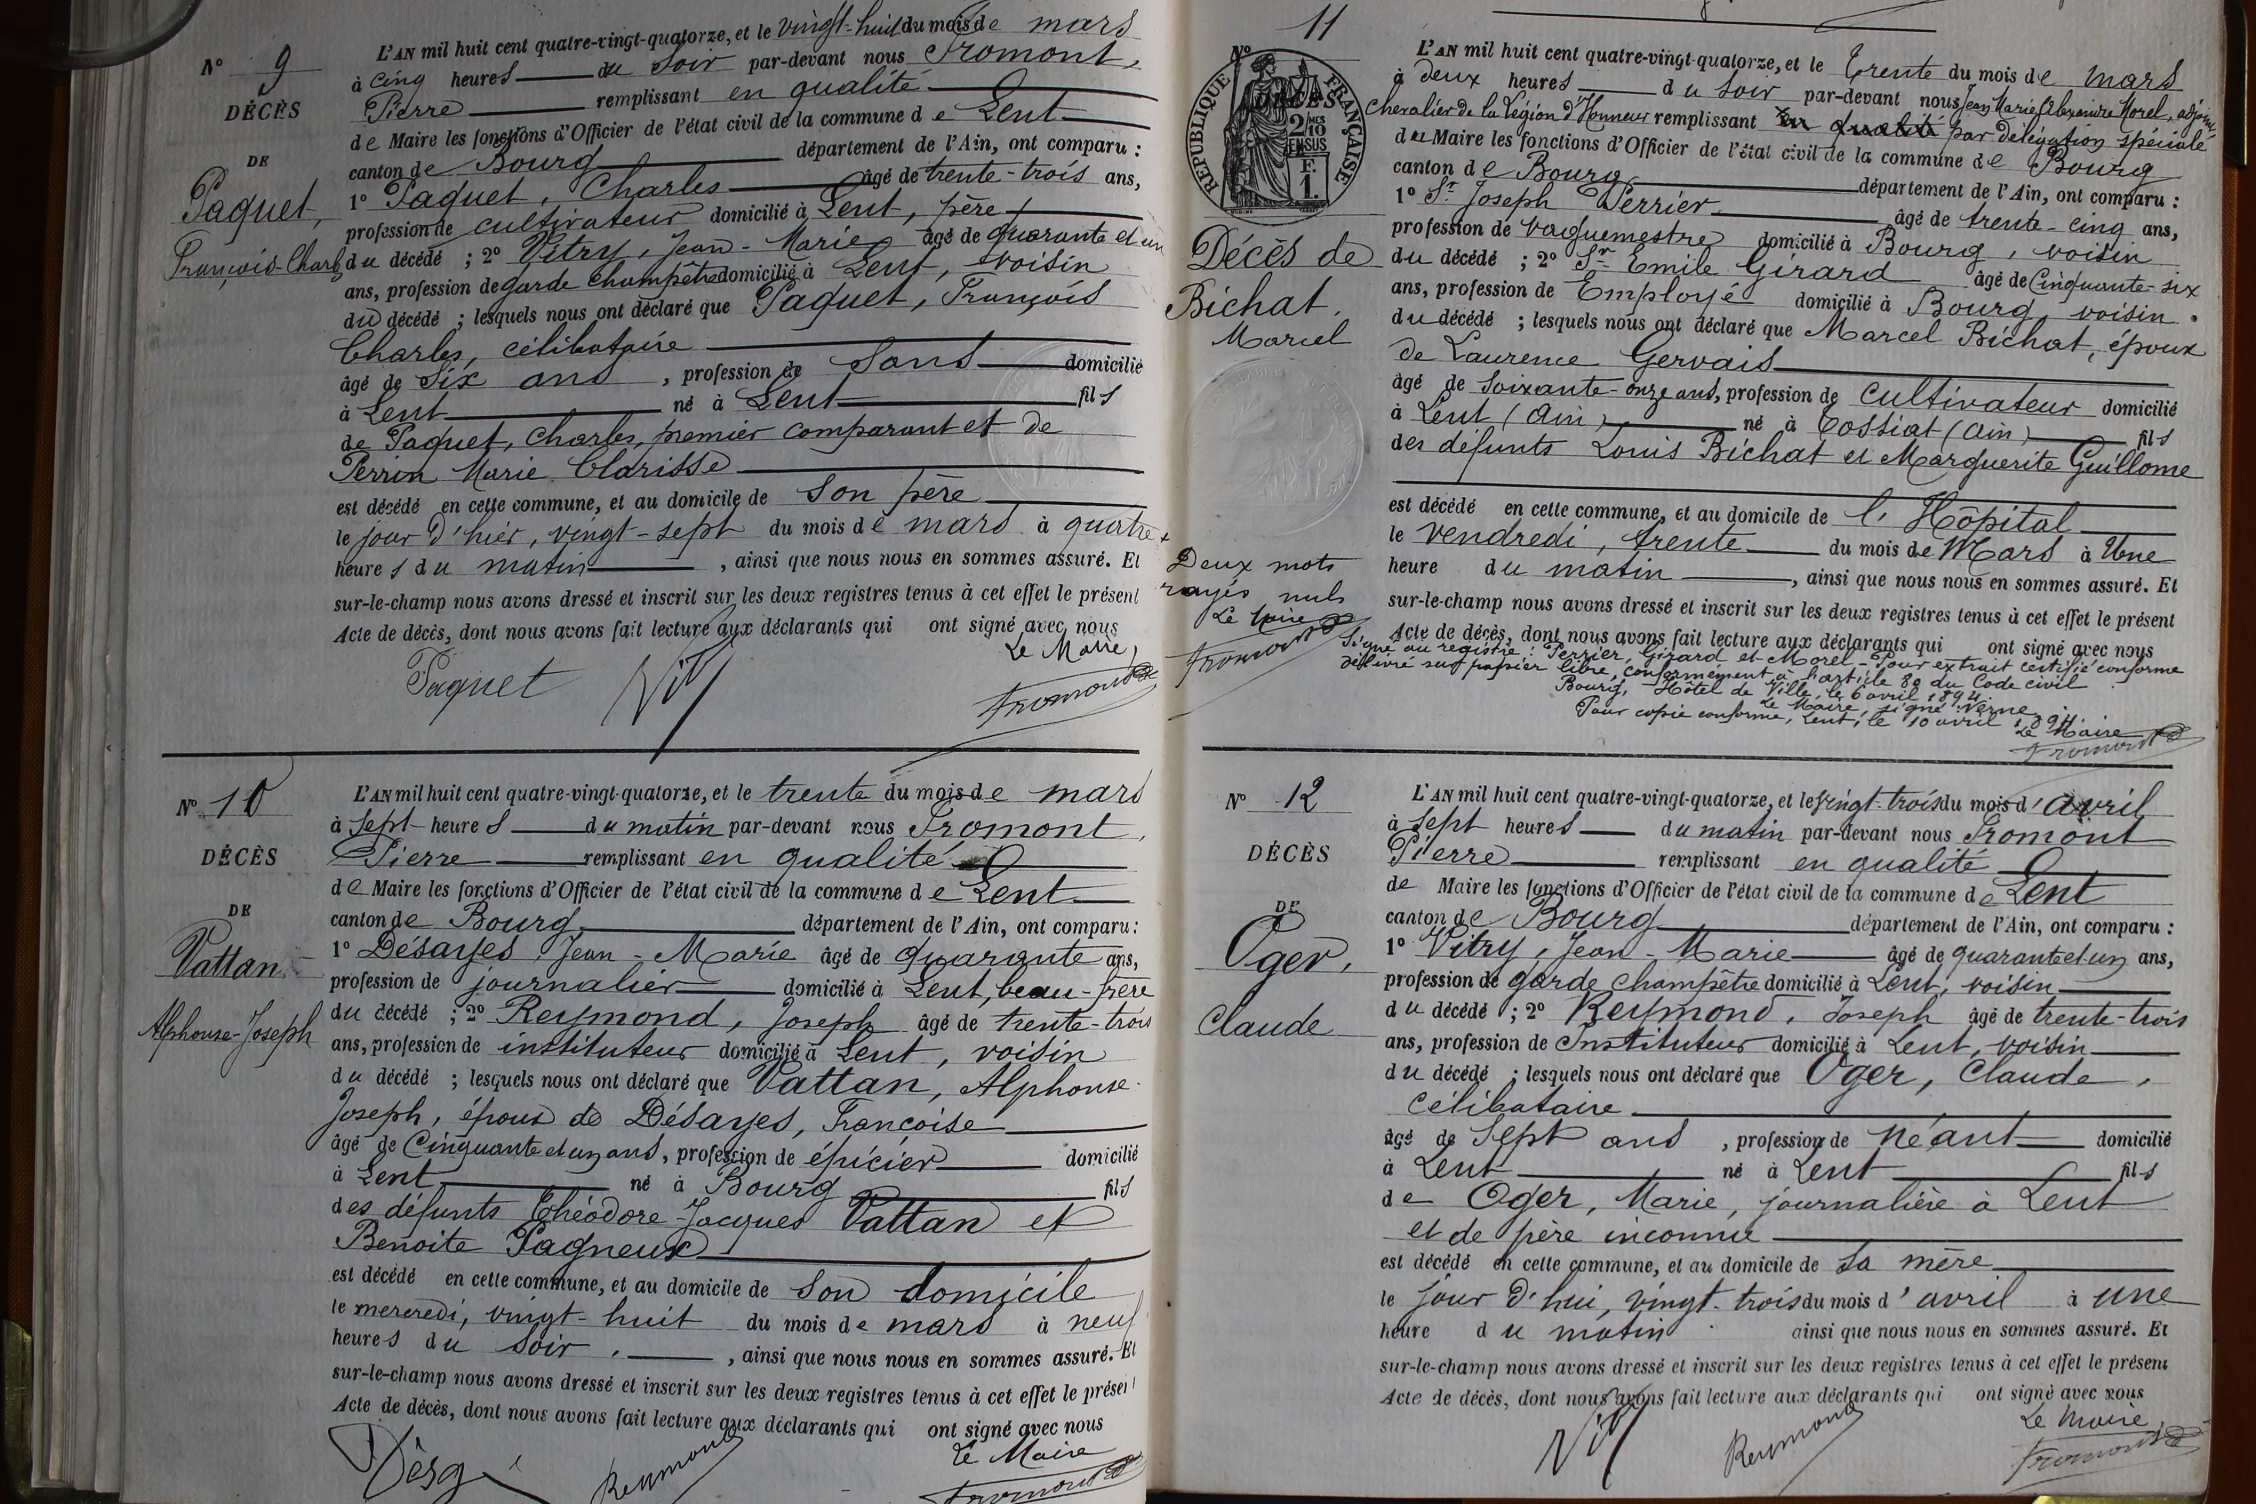 N° 9
DÉCÈS
DE
Paquet,
François-Charles
L'AN mil huit cent quatre-vingt-quatorze, et le vingt-huit du mois de mars
à cinq heures du soir par-devant nous Fromont,
Pierre remplissant en qualité
de Maire les fonctions d'Officier de l'état civil de la commune de Lent
canton de Bourg département de l'Ain, ont comparu :
1° Paquet, Charles âgé de trente-trois ans,
profession de cultivateur domicilié à Lent, père
du décédé ; 2° Vitry, Jean-Marie âgé de quarante et un
ans, profession de garde champêtre domicilié à Lent, voisin
du décédé ; lesquels nous ont déclaré que Paquet, François
Charles, célibataire
âgé de Six ans, profession de Sans domicilié
à Lent né à Lent fils
de Paquet, Charles, premier comparant et de
Perrin Marie Clarisse
est décédé en cette commune, et au domicile de son père
le jour d'hier, vingt-sept du mois de mars à quatre
heures du matin, ainsi que nous nous en sommes assuré. Et
sur-le-champ nous avons dressé et inscrit sur les deux registres tenus à cet effet le présent
Acte de décès, dont nous avons fait lecture aux déclarants qui ont signé avec nous
Le Maire,
Paquet Vitry Fromont
N° 10
DÉCÈS
DE
Vattan
Alphonse-Joseph
L'AN mil huit cent quatre-vingt-quatorze, et le trente du mois de mars
à sept heures du matin par-devant nous Fromont,
Pierre remplissant en qualité
de Maire les fonctions d'Officier de l'état civil de la commune de Lent
canton de Bourg département de l'Ain, ont comparu :
1° Désayes Jean-Marie âgé de quarante ans,
profession de journalier domicilié à Lent, beau-frère
du décédé ; 2° Reymond, Joseph âgé de trente-trois
ans, profession de instituteur domicilié à Lent, voisin
du décédé ; lesquels nous ont déclaré que Vattan, Alphonse-
Joseph, époux de Désayes, Françoise
âgé de Cinquante et un ans, profession de épicier domicilié
à Lent né à Bourg fils
des défunts Théodore-Jacques Vattan et
Benoite Pagneux
est décédé en cette commune, et au domicile de son domicile
le mercredi, vingt-huit du mois de mars à neuf
heures du soir, ainsi que nous nous en sommes assuré. Et
sur-le-champ nous avons dressé et inscrit sur les deux registres tenus à cet effet le présent
Acte de décès, dont nous avons fait lecture aux déclarants qui ont signé avec nous
Le Maire
Reymond Fromont
N° 11
DÉCÈS
RÉPUBLIQUE FRANÇAISE
2/10 EN SUS
F. 1.
Décès de
Bichat.
Marcel
L'AN mil huit cent quatre-vingt-quatorze, et le Trente du mois de mars
à deux heures du soir par-devant nous Jean Marie Alexandre Morel, adjoint,
Chevalier de la Légion d'Honneur remplissant en qualité par délégation spéciale
de Maire les fonctions d'Officier de l'état civil de la commune de Bourg
canton de Bourg département de l'Ain, ont comparu :
1° Sr. Joseph Perrier âgé de trente-cinq ans,
profession de vaguemestre domicilié à Bourg, voisin
du décédé ; 2° Sr Emile Girard âgé de Cinquante-six
ans, profession de Employé domicilié à Bourg, voisin
du décédé ; lesquels nous ont déclaré que Marcel Bichat, époux
de Laurence Gervais
âgé de soixante-onze ans, profession de cultivateur domicilié
à Lent (Ain) né à Tossiat (Ain) fils
des défunts Louis Bichat et Marguerite Guillome
est décédé en cette commune, et au domicile de l'Hôpital
le vendredi, trente du mois de Mars à Une
heure du matin, ainsi que nous nous en sommes assuré. Et
sur-le-champ nous avons dressé et inscrit sur les deux registres tenus à cet effet le présent
Acte de décès, dont nous avons fait lecture aux déclarants qui ont signé avec nous
Signé au registre : Perrier, Girard et Morel - Pour extrait certifié conforme
délivré sur papier libre, conformément à l'article 80 du Code civil
Bourg, Hôtel de Ville, le 6 avril 1894
Le Maire, signé : Verne
Pour copie conforme, Lent, le 10 avril 1894
Le Maire
Fromont
Deux mots
rayés nuls
Le Maire
Fromont
N° 12
DÉCÈS
DE
Oger,
Claude
L'AN mil huit cent quatre-vingt-quatorze, et le vingt-trois du mois d'avril
à sept heures du matin par-devant nous Fromont
Pierre remplissant en qualité
de Maire les fonctions d'Officier de l'état civil de la commune de Lent
canton de Bourg département de l'Ain, ont comparu :
1° Vitry, Jean-Marie âgé de quarante et un ans,
profession de garde champêtre domicilié à Lent, voisin
du décédé ; 2° Reymond, Joseph âgé de trente-trois
ans, profession de Instituteur domicilié à Lent, voisin
du décédé ; lesquels nous ont déclaré que Oger, Claude,
célibataire
âgé de Sept ans, profession de néant domicilié
à Lent né à Lent fils
de Oger, Marie, journalière à Lent
et de père inconnu
est décédé en cette commune, et au domicile de sa mère
le jour d'hui, vingt-trois du mois d'avril à une
heure du matin ainsi que nous nous en sommes assuré. Et
sur-le-champ nous avons dressé et inscrit sur les deux registres tenus à cet effet le présent
Acte de décès, dont nous avons fait lecture aux déclarants qui ont signé avec nous
Le Maire,
Vitry Reymond Fromont